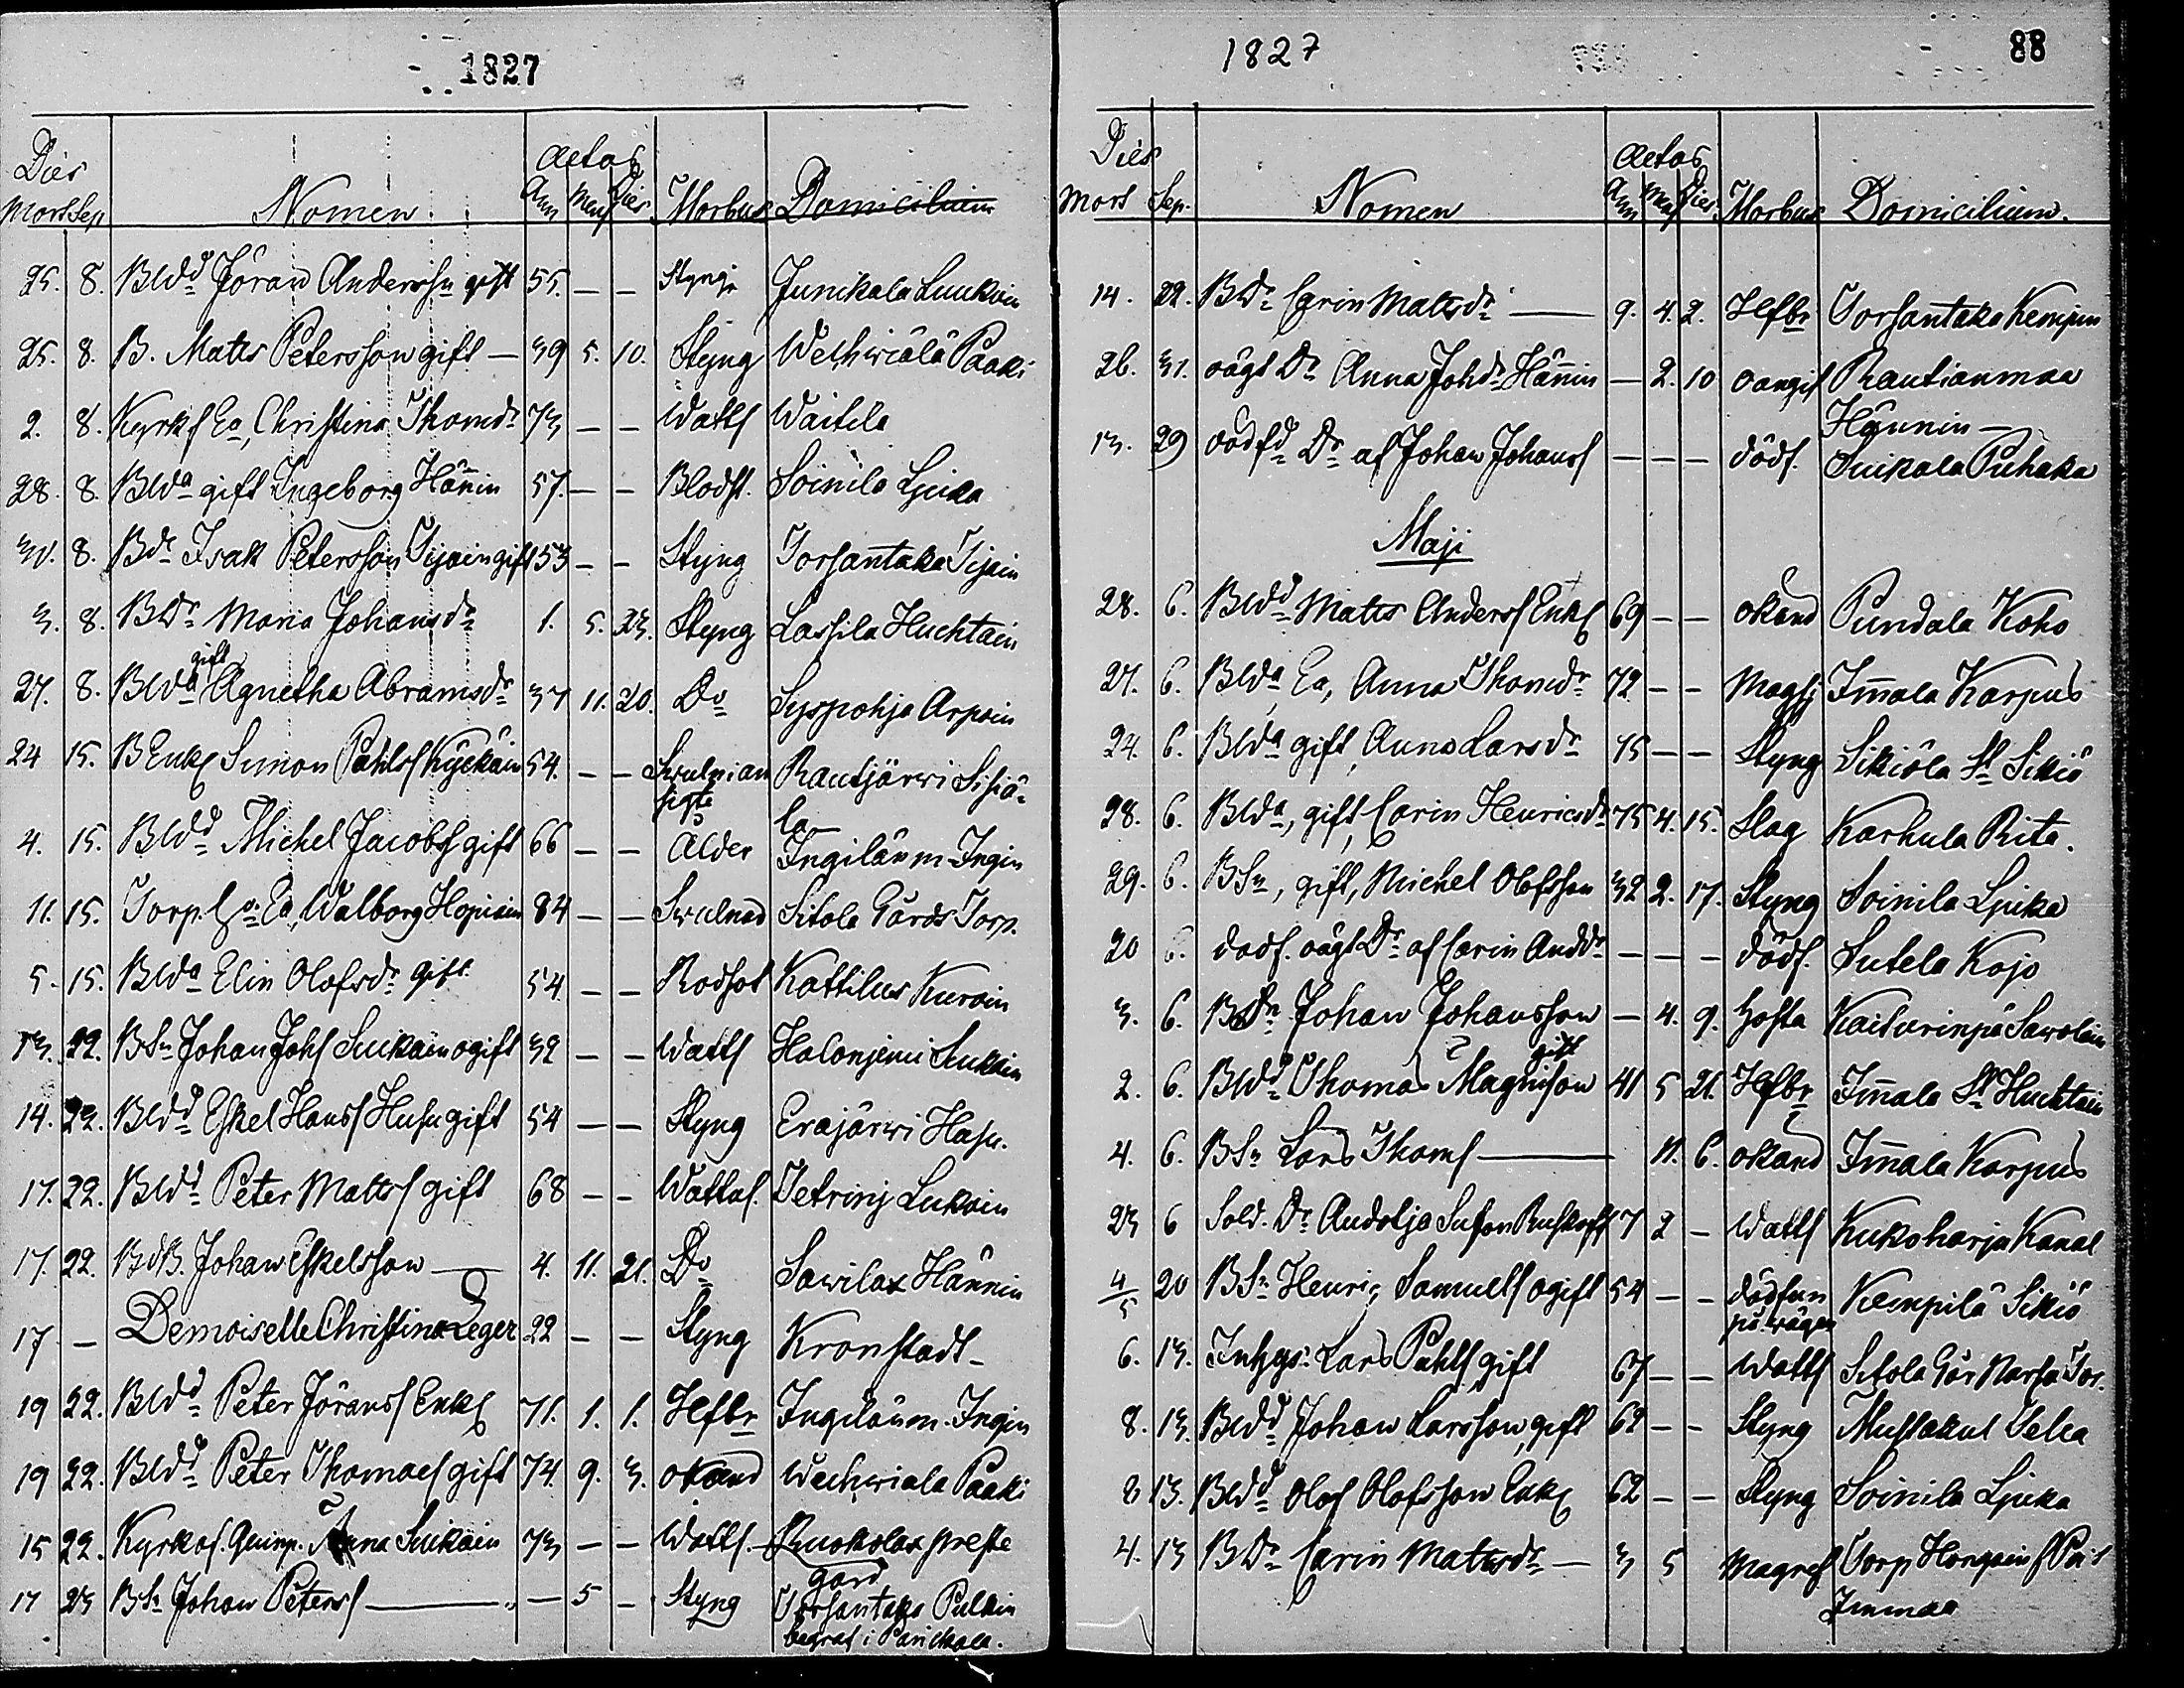 1827
Dies
Mors Sep. Nomen Aetas Ann Mens Dies Morbus Domicilium
25. 8. Bldd Jöran Anderssn gift 55. — — Styng Junikala Luukain
25. 8. B. Matts Petersson gift — 39 5. 10. Styng Wechwiälä Paaki
2. 8. Kyrkf Ea, Christina Thomdr 73 — — Watts Waitila
28. 8. Blda gift Ingeborg Hänin 57. — — Blodst. Soinila Ljuka
31. 8. Bdr Isak Petersson Tijain gift 53 — — Styng Torsantaka Tijain
3. 8. BDr Maria Johansdr 1. 5. 23. Styng Lassila Huchtain
27. 8. Blda gift Agnetha Abramsdr 37 11. 20. Do Syspohja Arpain
24 15. BEnkl Simon Påhls Kyckäin 54. — — Rautjärwi Sisiä-
la
4. 15. Bldd Michel Jacobs gift 66 — — Ålder Ingiläinm Ingin
11. 15. Torp Ea, Walborg Hopiain 84 — — Swulnad Sitola Gårds Torp.
5. 15. Blda Elin Olofsdr gift 54 — — Rodsot Kattilus Kurain
13. 22. BSn Johan Johs Suikain ogift 32 — — Watts Halonjemi Suikain
14. 22. Bldd Eskel Hanss Husu gift 54 — — Styng Eräjärwi Husu.
17. 22. Bldd Peter Matts gift 68 — — Wattus. Petrinj Lukain
17. 22. BdB. Johan Eskelsson — 4. 11. 21. Do Sawilax Hännin
17 — Demoiselle Christina Leger 22 — — Styng Kronstadt —
19 22. Bldd Peter Jörans Enkl 71. 1. 1. Hefbr Ingiläinm. Ingin
19 22. Bldd Peter Thomaes gift 74. 9. 3. okänd Wechwiala Paaki
15 22. Kyrkof. Quinp. Anna Suikain 73 — — Watts. Ruokolax preste
gård
17 23 BSn Johan Peters — — 5 — Styng Torsantaka Pulkin
begraf i Parickala.
1827 88
Dies
Mors Sep. Nomen Aetas Ann Mens Dies Morbus Domicilium.
14. 22. BDr Carin Mattsdr — 9. 4. 2. Hefbr Torsantaka Kempin
26. 31. oägt Dr Anna Johdr Hänin — 2. 10 oangif Rautianmaa
Hännin —
13. 29 dödfd Dr af Johan Johans — — — dödf. Suikala Puhaka
Maji
28. 6. Bldd Matts Anders Enkl 69 — — okänd Pundala Koho
27. 6. Blda Ea, Anna Thomdr 72 — — Magsj Imala Karpus
24. 6. Blda gift, Anna Larsdr 75 — — Styng Sikiöla St Sikiö
28. 6. Blda, gift, Carin Henricsdr 75 4. 15. Slag Karhula Rita.
29. 6. BSn, gift, Michel Olofsson 32 2. 17. Styng Soinila Ljuka
20 6. dödf. oägt Dr af Carin Anddr — — — dödf. Sutela Kojo
3. 6. BSn Johan Johansson — 4. 9. Hosta Kaiturinpä Sawolain
2. 6. Bldd Thomas Magnison gift 41 5 21. Hefbr Imala St Huchtain
4. 6. BSn Lars Thoms — 11. 6. okänd Imala Karpus
23 6 Sold. Dr Audotja 7 2 — Watts Kukoharju Kanal
4/5 20 BSn Henric Samuels ogift 54 — — dödfun
på wägen Kempilä Sikiö
6. 13. Inhys. Lars Påhls gift 67 — — Watts Sitola Går Torp.
8. 13. Bldd Johan Larsson, gift 62 — — Styng Mustakul
8 13. Bldd Olof Olofsson Enkl 62 — — Styng Soinila Ljuka
4. 13 BDr Carin Mattsdr — 3 5 Magref Torp Honpain
Immaa